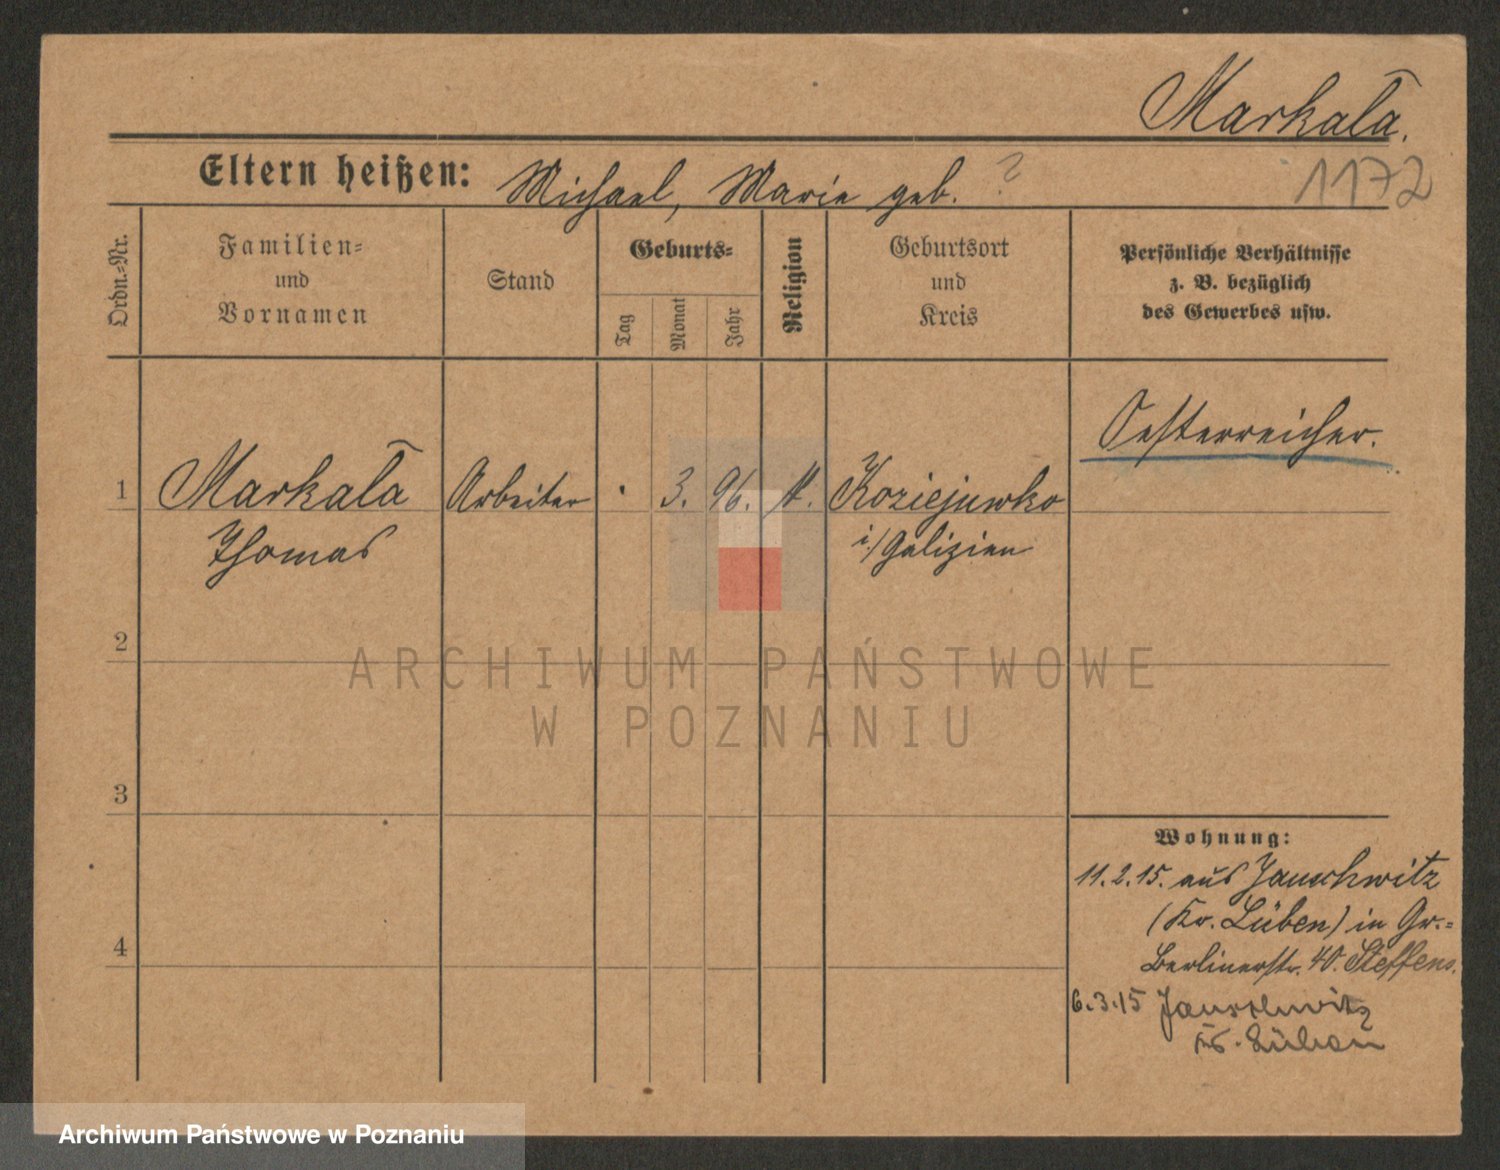 Markała.
1172
Eltern heißen: Michael, Marie geb. ?
Ordn.=Nr.
Familien=
und
Vornamen
Stand
Geburts=
Tag
Monat
Jahr
Religion
Geburtsort
und
Kreis
Persönliche Verhältnisse
z. B. bezüglich
des Gewerbes usw.
Oesterreicher.
1 Markała Arbeiter . 3. 96. k. Koziejuwko
Thomas i/Galizien
2
3
4
Wohnung:
11.2.15. aus Jauschwitz
(Kr. Lüben) in Gr.=
Berlinerstr. 40. Steffens.
6.3.15 Jauschwitz
Kr. Lüben
ARCHIWUM PAŃSTWOWE
W POZNANIU
Archiwum Państwowe w Poznaniu